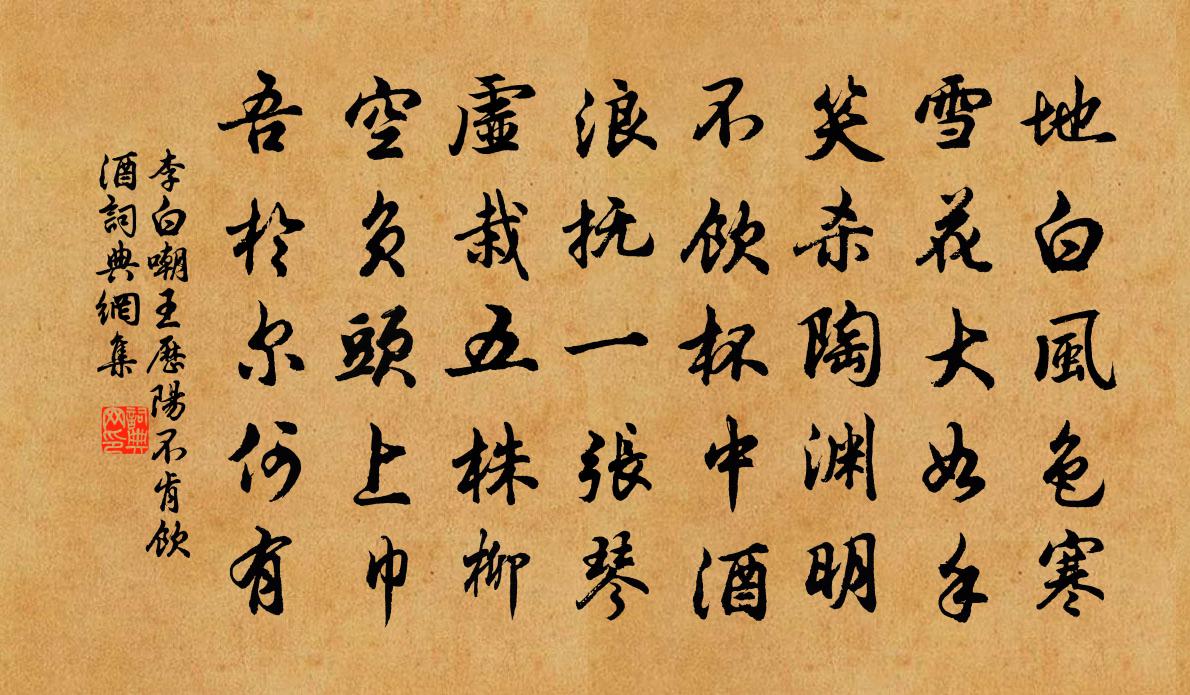 地白風色寒
雪花大如手
笑杀陶渊明
不飲杯中酒
浪抚一張琴
虛栽五株柳
空负頭上巾
吾於尔何有
李白嘲王歷陽不肯飲
酒詞典網集
詞典
网印